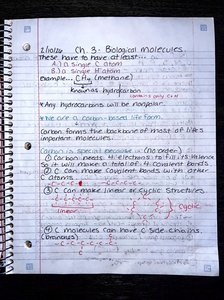 Ch. 3: Biological molecules.
These have to have at least...
A.) a single C atom
B.) a single H atom
example... CH4 (methane)
known as hydrocarbon
contains only C+H
*Any hydrocarbons will be nonpolar.
*We are a carbon-based life form.
Carbon forms the backbone of most of life's
important molecules.
Carbon is special because (no order)
① Carbon needs 4 electrons to fill its valence
So it will make a total of 4 covalent bonds
② C can make covalent bonds with other
C atoms.
③ C can make linear or cyclic structures.
linear
cyclic
④ C molecules can have C side-chains.
(branches)